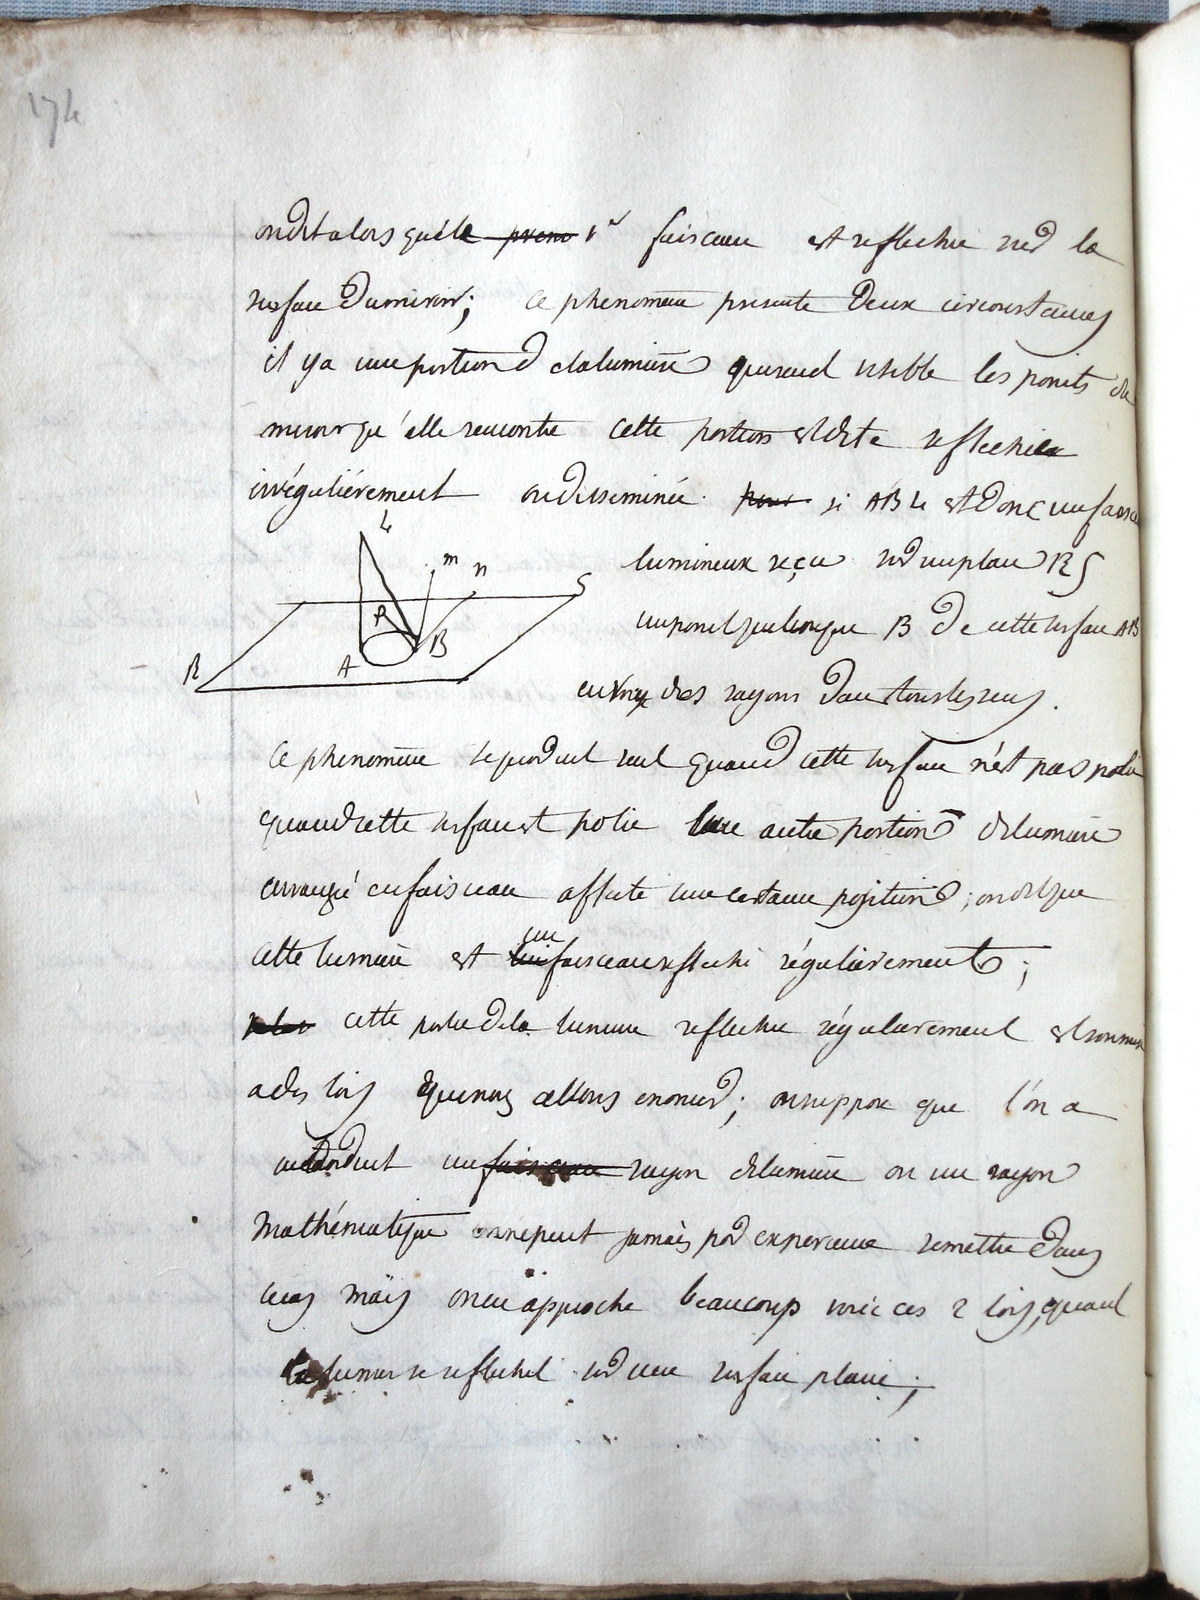 174
on dit alors que le prem 1er faisceau est reflechie sur la
surface du miroir; ce phenomene presente deux circonstances
il y a une portion de la lumiere qui rend visible les points du
miroir qu'elle rencontre cette portion est dite reflechie
irrégulièrement ou disseminée. pour si ABL est donc un faisceau
lumineux reçu sur un plan RS
un point quelconque B de cette surface AB
envoye des rayons dans tous les sens.
L
m n S
P
R A B
Ce phenomene se produit seul quand cette surface n'est pas polie
quand cette surface est polie une autre portion de lumiere
arrangé en faisceau affecte une certaine position; on dit que
cette lumiere est un faisceau reflechi régulièrement;
un
cette partie de la lumiere reflechie régulierement est soumise
a des lois que nous allons enoncer; on suppose que l'on a
introduit un faisceau rayon de lumiere ou un rayon
mathématique on ne peut jamais par experience se mettre dans
ce cas mais on en approche beaucoup voici ces 2 lois, quand
la lumiere se reflechit sur une surface plane;